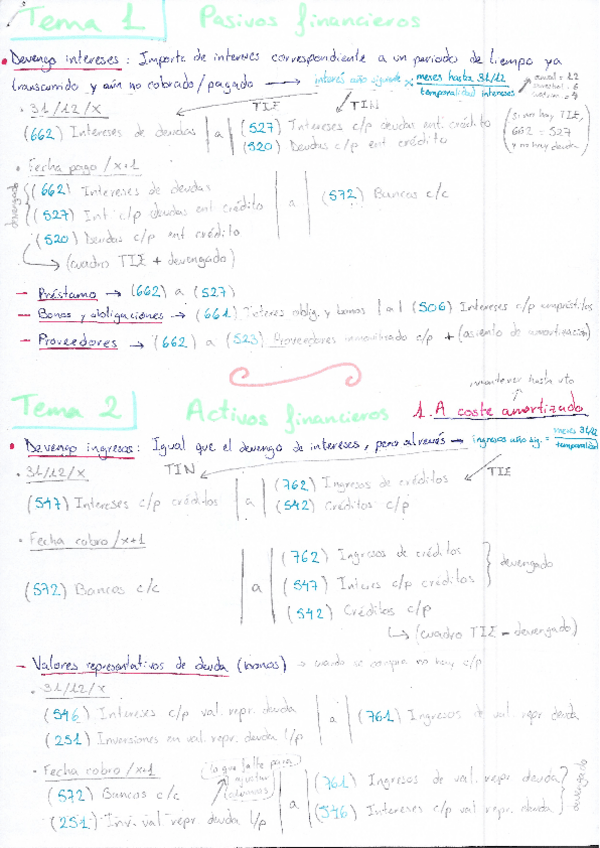 Tema 1 Pasivos financieros
• Devengo intereses: Importe de intereses correspondiente a un periodo de tiempo ya
transcurrido y aún no cobrado/pagado → interés año siguiente × meses hasta 31/12 / temporalidad intereses
anual = 12
semestral = 6
• 31/12/X TIE TIN
(662) Intereses de deudas | a | (527) Intereses c/p deudas ent. crédito
(520) Deudas c/p ent crédito
(si no hay TIE,
662 = 527
y no hay deuda)
• Fecha pago /X+1
devengado
(662) Intereses de deudas
(527) Int. c/p deudas ent crédito | a | (572) Bancos c/c
(520) Deudas c/p ent crédito
→ (cuadro TIE + devengado)
– Préstamo → (662) a (527)
– Bonos y obligaciones → (661) Interes oblig. y bonos | a | (506) Intereses c/p empréstitos
– Proveedores → (662) a (523) Proveedores inmovilizado c/p + (asiento de amortización)
mantener hasta vto
Tema 2 Activos financieros 1. A coste amortizado
• Devengo ingresos: Igual que el devengo de intereses, pero al revés → ingresos año sig. = meses 31/12 / temporalidad
• 31/12/X TIN TIE
(547) Intereses c/p créditos | a | (762) Ingresos de créditos
(542) Créditos c/p
• Fecha cobro /X+1
(762) Ingresos de créditos
(572) Bancos c/c | a | (547) Interes c/p créditos
devengado
(542) Créditos c/p
→ (cuadro TIE – devengado)
– Valores representativos de deuda (bonos) → cuando se compra no hay c/p
• 31/12/X
(546) Intereses c/p val. repr. deuda | a | (761) Ingresos de val repr deuda
(251) Inversiones en val. repr. deuda l/p
• Fecha cobro /X+1
(lo que falte para
ajustar
columnas)
(572) Bancos c/c
(251) Inv. val repr deuda l/p | a | (761) Ingresos de val. repr deuda
(546) Intereses c/p val repr. deuda
devengado